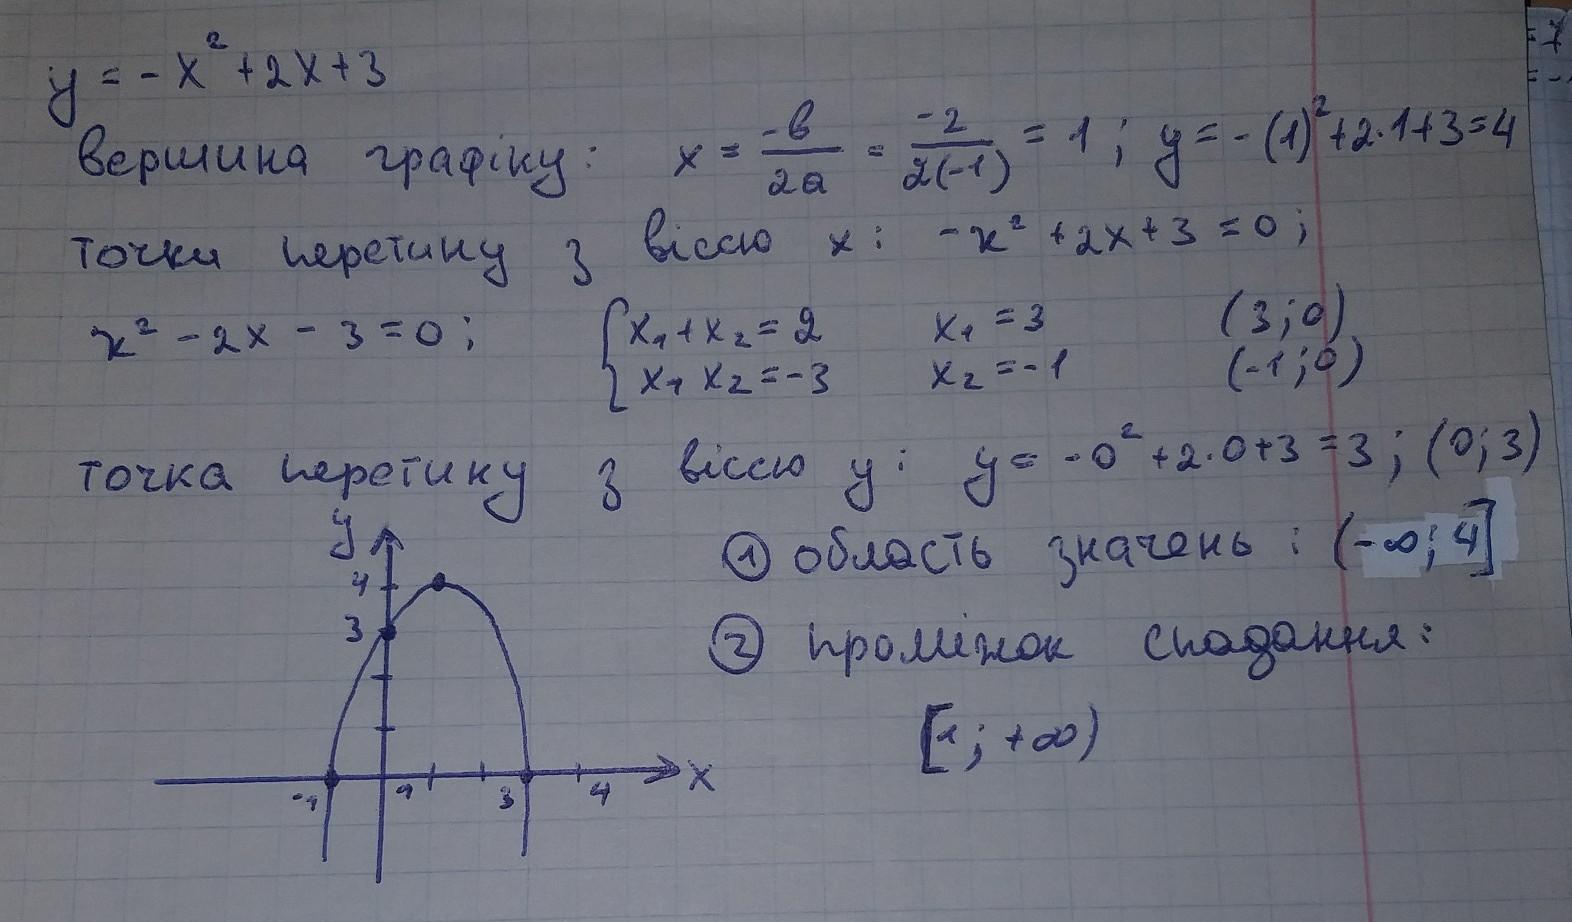 y = -x² + 2x + 3
вершина графіку: x = -b/2a = -2/2(-1) = 1; y = -(1)² + 2·1+3=4
точки перетину з віссю x: -x² + 2x + 3 = 0;
x² - 2x - 3 = 0; { x₁ + x₂ = 2 x₁ = 3 (3; 0)
x₁ x₂ = -3 x₂ = -1 (-1; 0)
точка перетину з віссю y: y = -0² + 2·0+3 = 3; (0; 3)
① область значень: (-∞; 4]
② проміжок спадання:
[1; +∞)
y
4
3
-1 1 3 4 x